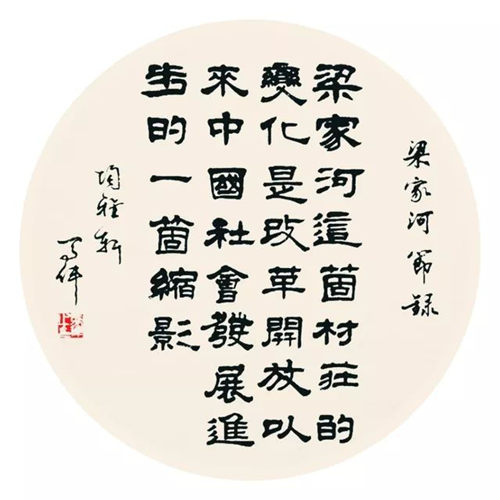 梁家河節錄
梁家河這箇村莊的
變化是改革開放以
來中國社會發展進
步的一箇縮影
雅軒